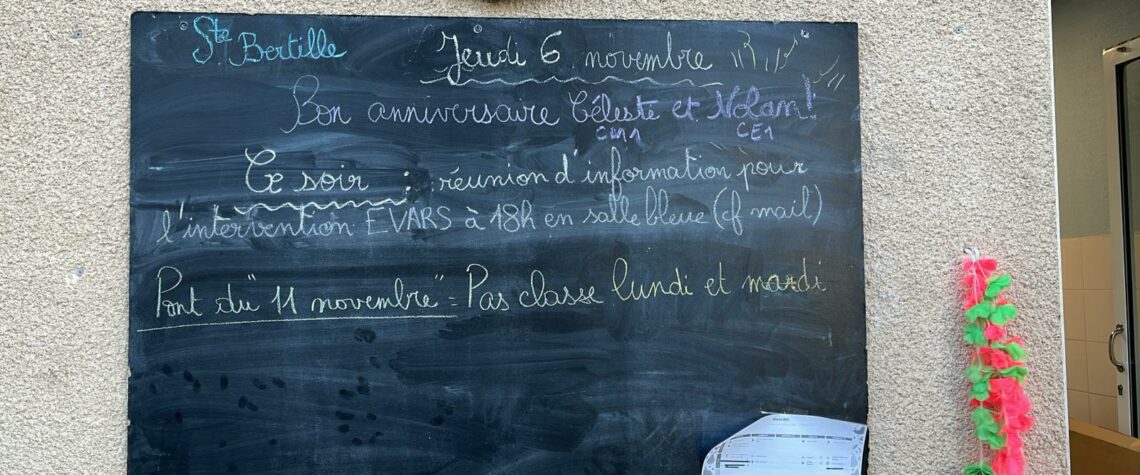 Ste Bertille
Jeudi 6 novembre
Bon anniversaire Céleste et Nolan!
CM1 CE1
Ce soir : réunion d'information pour
l'intervention EVARS à 18h en salle bleue (cf mail)
Pont du "11 novembre" = Pas classe lundi et mardi